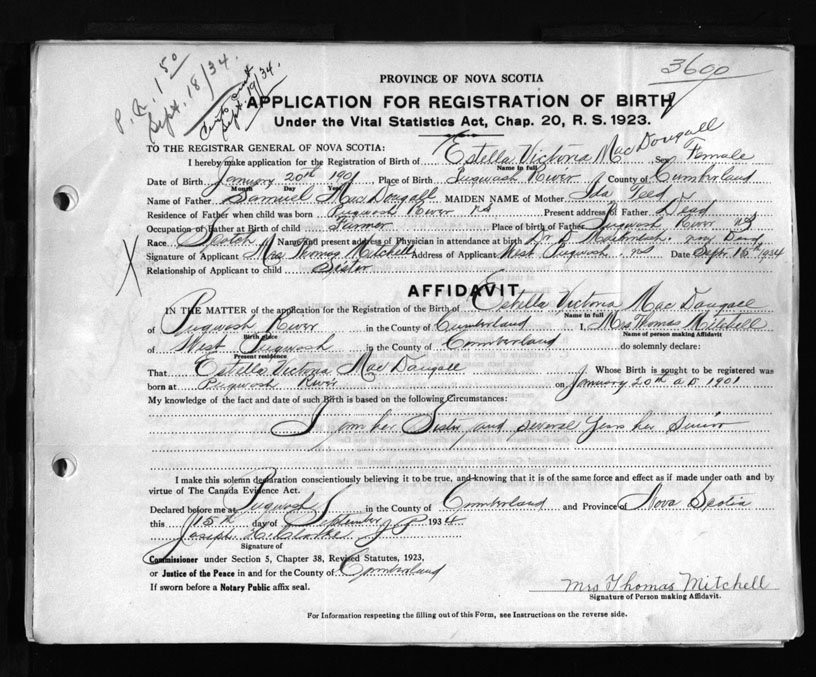 P.A. 1.50
Sept. 18/34.
Sept. 19/34.
3600
PROVINCE OF NOVA SCOTIA
APPLICATION FOR REGISTRATION OF BIRTH
Under the Vital Statistics Act, Chap. 20, R. S. 1923.
TO THE REGISTRAR GENERAL OF NOVA SCOTIA:
I hereby make application for the Registration of Birth of Estella Victoria MacDougall Sex Female
Name in full
Date of Birth January 20th 1901 Place of Birth Pugwash River County of Cumberland
Month Day Year
Name of Father Samuel MacDougall MAIDEN NAME of Mother Ida Teed
Residence of Father when child was born Pugwash River NS Present address of Father Dead
Occupation of Father at Birth of child Farmer Place of birth of Father Pugwash River NS
Race Scotch Name and present address of Physician in attendance at birth Dead
Signature of Applicant Mrs Thomas Mitchell Address of Applicant West Pugwash NS Date Sept. 15th 1934
Relationship of Applicant to child Sister
AFFIDAVIT
IN THE MATTER of the application for the Registration of the Birth of Estella Victoria MacDougall
Name in full
of Pugwash River in the County of Cumberland I, Mrs Thomas Mitchell
Birth place Name of person making Affidavit
of West Pugwash in the County of Comberland do solemnly declare:
Present residence
That Estella Victoria MacDougall Whose Birth is sought to be registered was
born at Pugwosh River on January 20th A D 1901
My knowledge of the fact and date of such Birth is based on the following Circumstances:
I am her Sister and several years her Senior
I make this solemn declaration conscientiously believing it to be true, and knowing that it is of the same force and effect as if made under oath and by
virtue of The Canada Evidence Act.
Declared before me at Pugwash in the County of Comberland and Province of Nova Scotia
this 15th day of September 1934
Joseph H. Clarke JP
Signature of
Commissioner under Section 5, Chapter 38, Revised Statutes, 1923,
or Justice of the Peace in and for the County of Comberland
If sworn before a Notary Public affix seal.
Mrs Thomas Mitchell
Signature of Person making Affidavit.
For Information respecting the filling out of this Form, see Instructions on the reverse side.